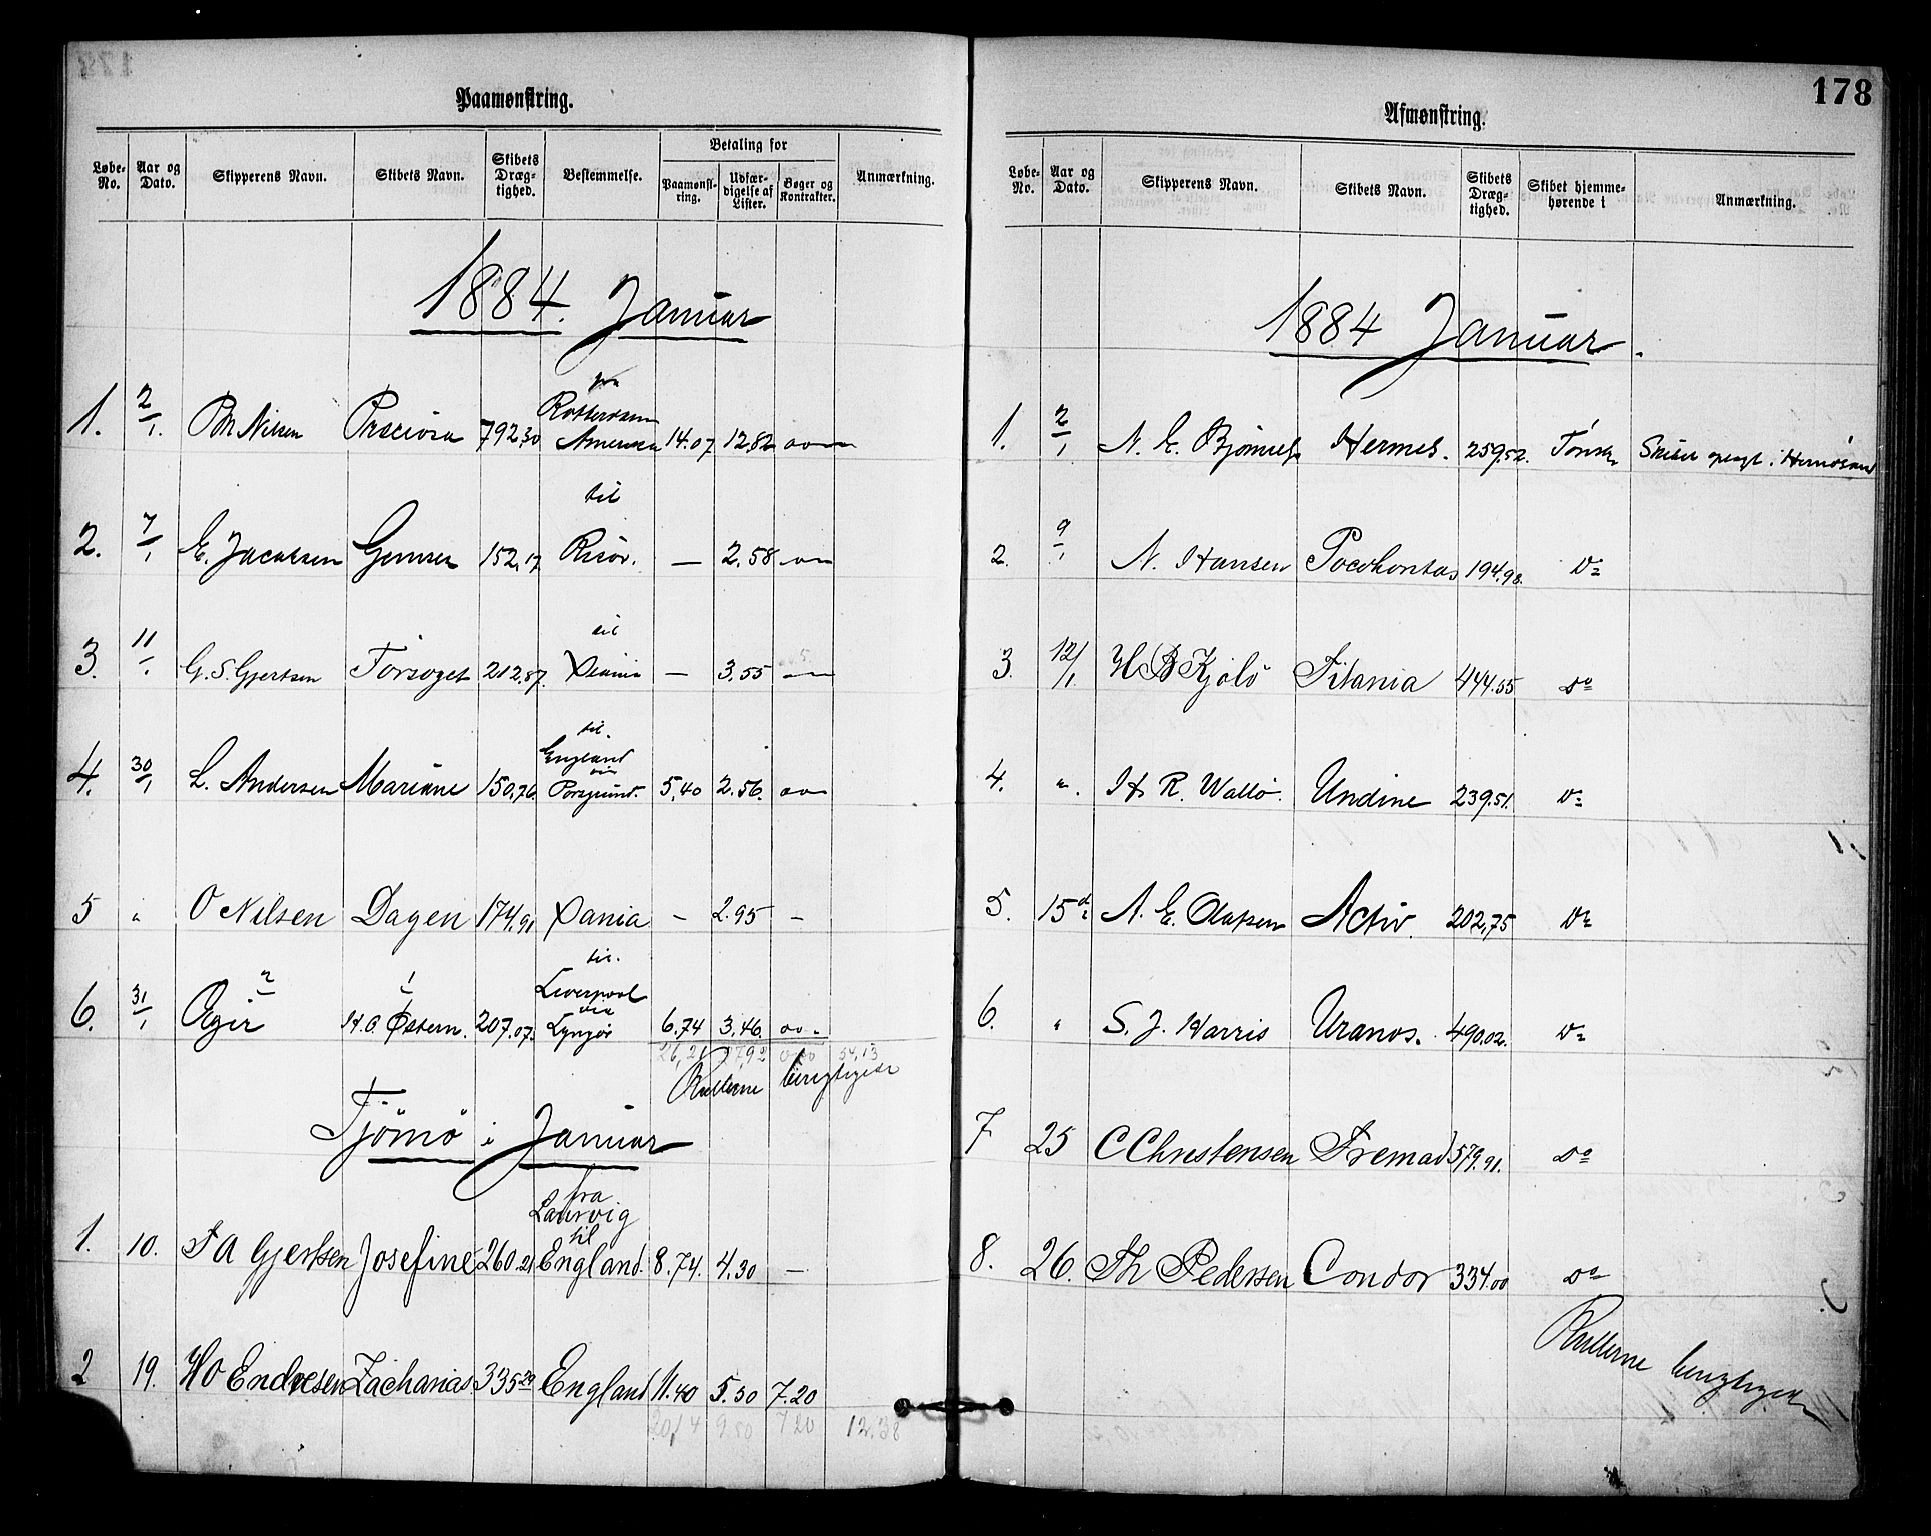 178
Paamønstring.
Løbe-No. Aar og Dato. Skipperens Navn. Skibets Navn. Skibets Dræg-tighed. Bestemmelse. Betaling for Paamønst-ring. Udfær-digelse af Lister. Bøger og Kontrakter. Anmærkning.
1884. Januar
fra
Rotterdam
1. 2/1. Nilsen Preciosa 792,30 America 14.07 12.82
til
2. 7/1 E. Jacobsen 152,17 Risör. — 2.58
til
3. 11/1. G. S. Gjertsen Forsøget 212.87. Xiania — 3,55
til
England
via
4. 30/1 L. Andersen Mariane 150,76. Porsgrund. 5,40 2.56.
5 " O Nilsen Dagen 174,91 Xania - 2.95 -
til.
Liverpool
via
2 1
6. 31/1 Ægir H. A. Østern. 207.07. Lyngör 6.74 3,46.
26,21 27,92 54,13
Rullerne berigtigede
Tjömö i Januar
fra
Laurvig
til
1. 10. F A Gjertsen Josefine 260.21 England. 8.74. 4.30 —
2 19. H O Endresen Zacharias 335.29 England 11.40 5.50 7.20
20,14 9.80 720 12.38
Afmønstring.
Løbe-No. Aar og Dato. Skipperens Navn. Skibets Navn. Skibets Dræg-tighed. Skibet hjemme-hørende i Anmærkning.
1884 Januar.
1. 2/1 N. E. Hermes. 259.52. Tönsb Skibet oplagt i Hernösand
2. 9/1 N. Hansen Pocohontas 194,98. Do
3. 12/1. H B Kjølö Titania 444.55 Do
4. ". H R. Wallö. Undine 239.51. Do
5. 15d A. E. Olafsen Activ. 202,75 Do
6. " S. J. Harris Uranos. 490.02. Do
7 25 C Christensen Fremad 579.91. Do
8. 26. Th Pedersen Condor 334.00 Do
Rullerne berigtigede